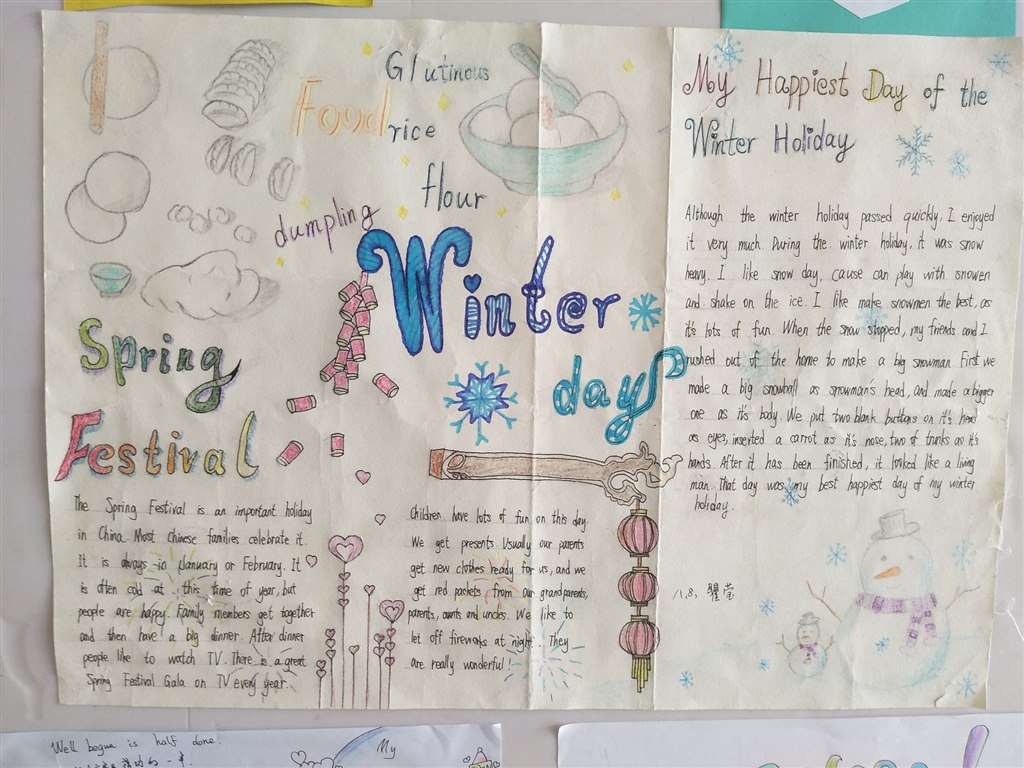 Food
Glutinous
rice
flour
dumpling
Winter
days
Spring
Festival
The Spring Festival is an important holiday
in China. Most Chinese families celebrate it.
It is always in January or February. It
is often cold at this time of year, but
people are happy. Family members get together
and then have a big dinner. After dinner
people like to watch TV. There is a great
Spring Festival Gala on TV every year.
Children have lots of fun on this day.
We get presents. Usually our parents
get new clothes ready for us, and we
get red packets from our grandparents,
parents, aunts and uncles. We like to
let off fireworks at night. They
are really wonderful!
My Happiest Day of the
Winter Holiday
Although the winter holiday passed quickly, I enjoyed
it very much. During the winter holiday, it was snow
heavy. I like snow day, cause can play with snowen
and shake on the ice. I like make snowmen the best, as
it's lots of fun. When the snow stopped, my friends and I
rushed out of the home to make a big snowman. First we
made a big snowball as snowman's head, and made a bigger
one as it's body. We put two blank buttons on it's head
as eyes, inserted a carrot as it's nose, two of trunks as it's
hands. After it has been finished, it looked like a living
man. That day was my best happiest day of my winter
holiday.
八.8.
Well begun is half done.
My